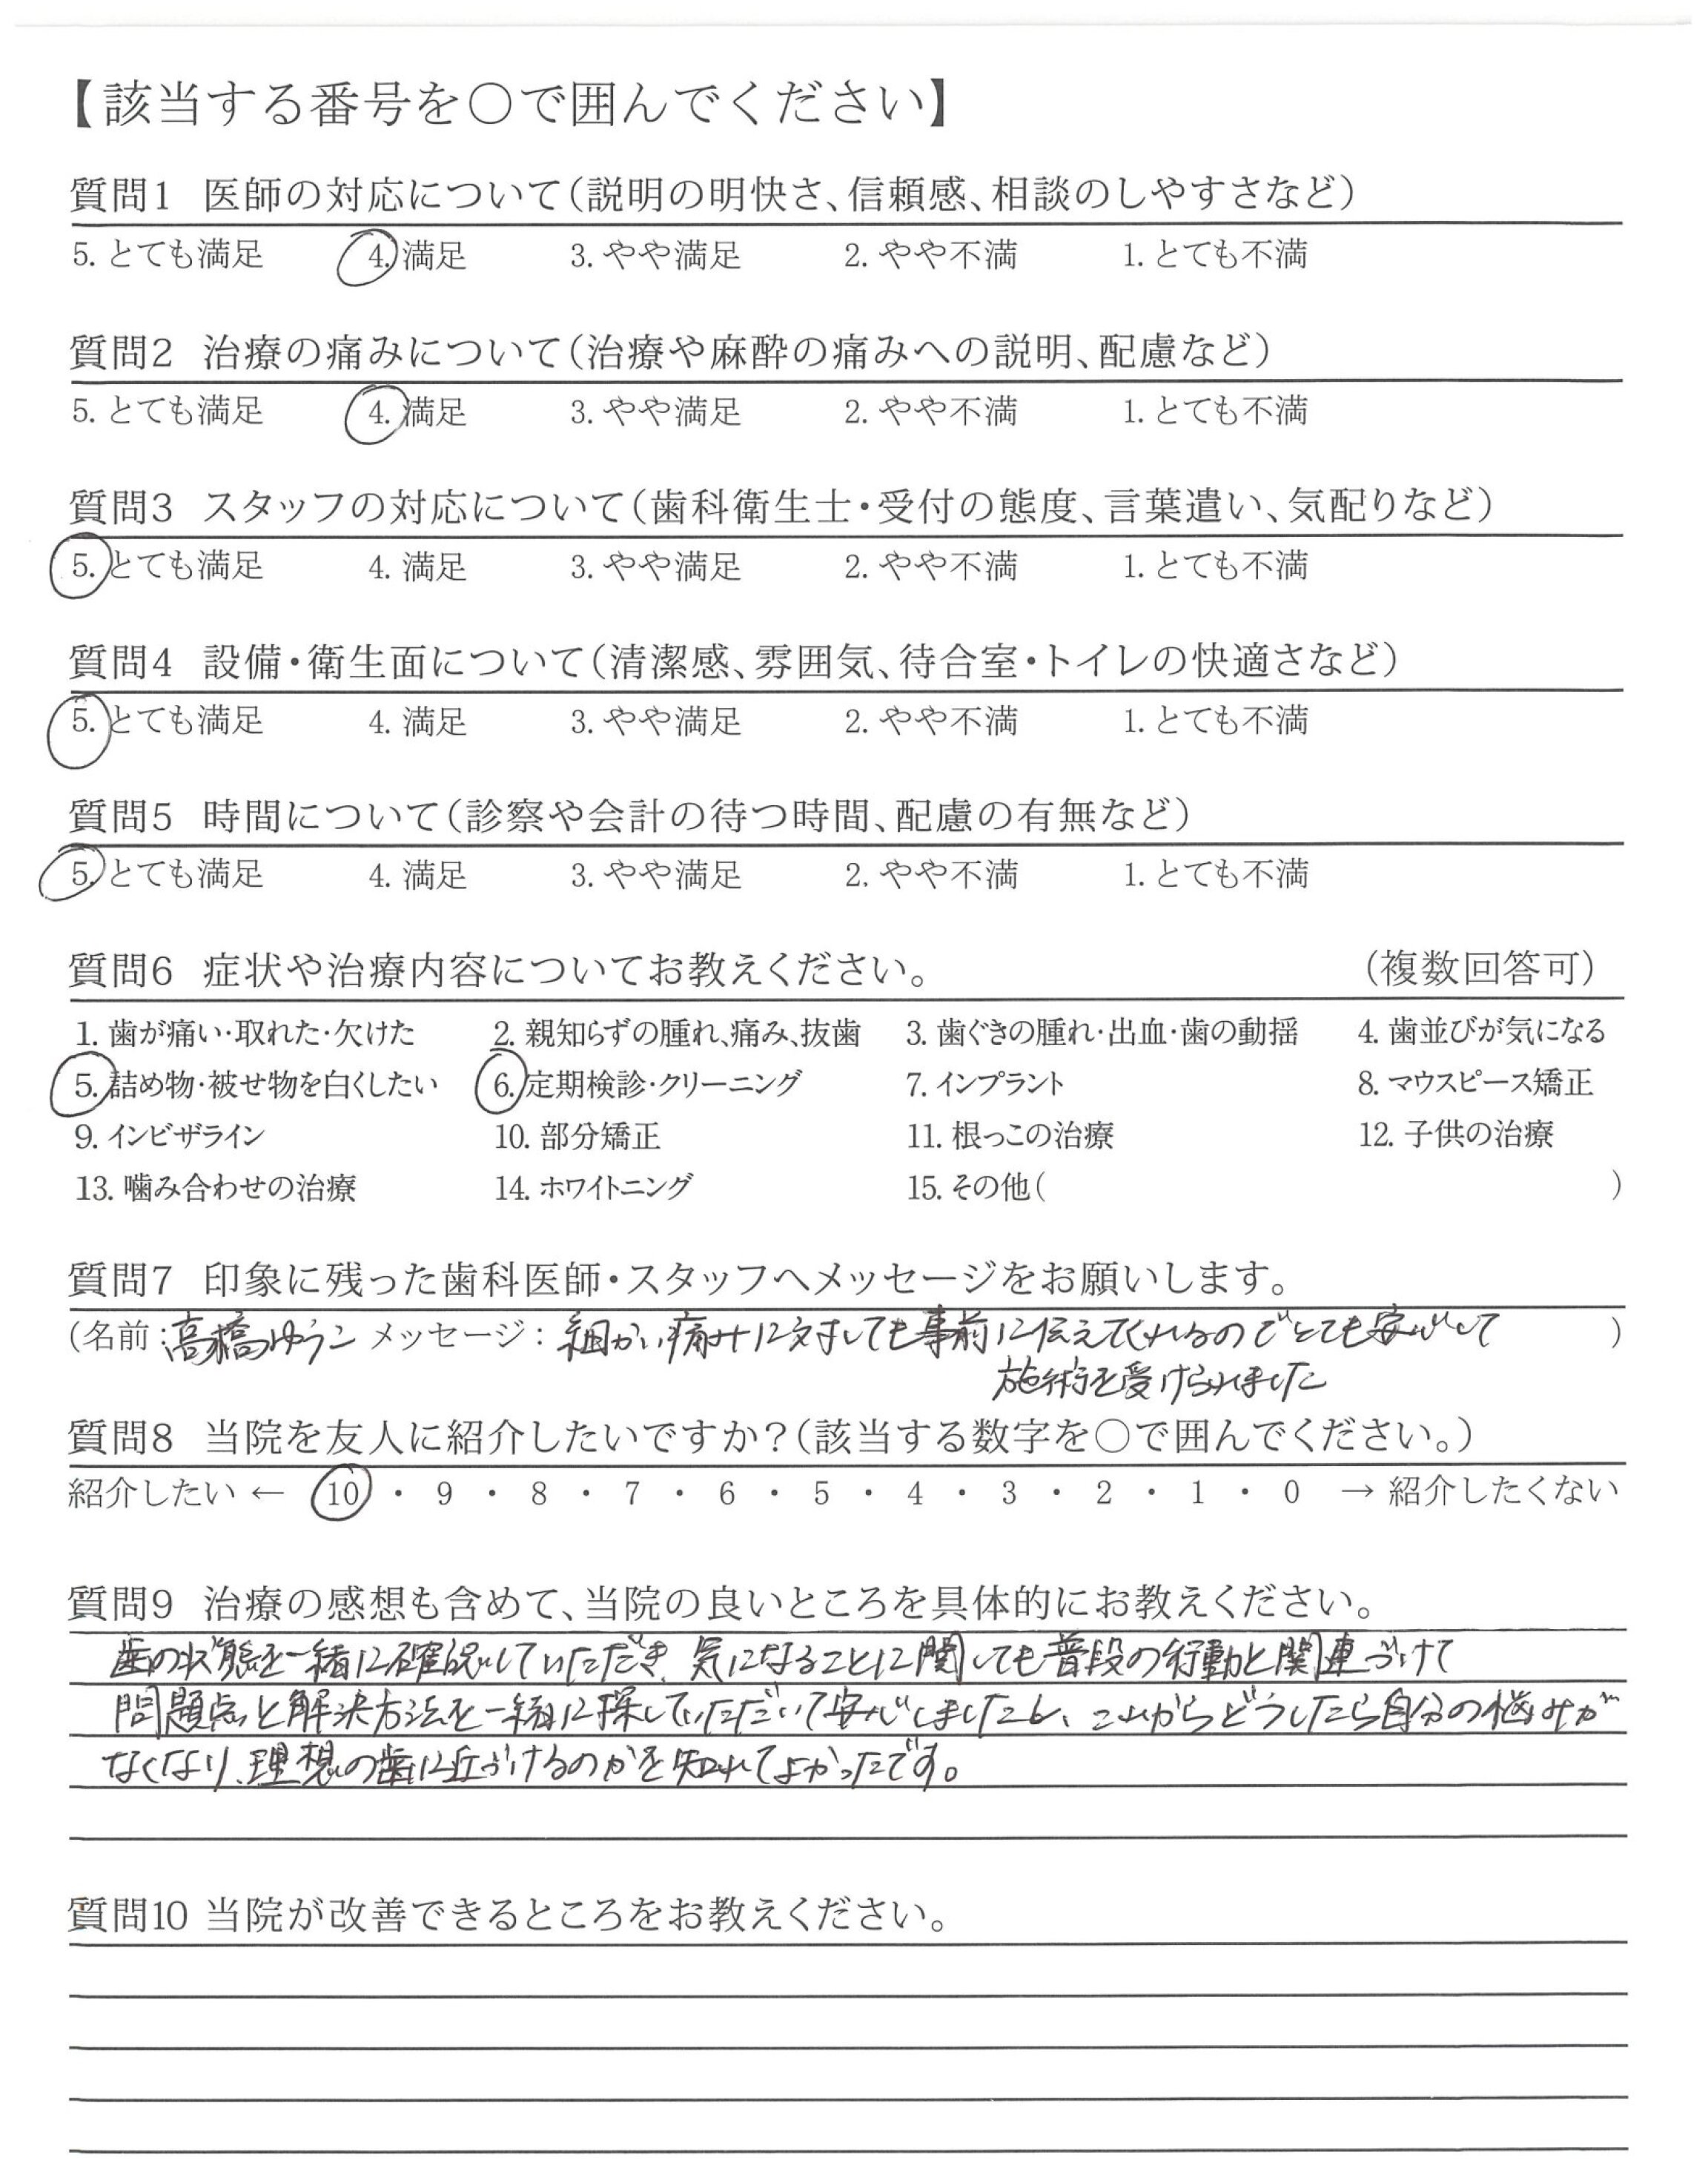 【該当する番号を○で囲んでください】
質問1 医師の対応について(説明の明快さ、信頼感、相談のしやすさなど)
5. とても満足 4. 満足 3. やや満足 2. やや不満 1. とても不満
質問2 治療の痛みについて(治療や麻酔の痛みへの説明、配慮など)
5. とても満足 4. 満足 3. やや満足 2. やや不満 1. とても不満
質問3 スタッフの対応について(歯科衛生士・受付の態度、言葉遣い、気配りなど)
5. とても満足 4. 満足 3. やや満足 2. やや不満 1. とても不満
質問4 設備・衛生面について(清潔感、雰囲気、待合室・トイレの快適さなど)
5. とても満足 4. 満足 3. やや満足 2. やや不満 1. とても不満
質問5 時間について(診察や会計の待つ時間、配慮の有無など)
5. とても満足 4. 満足 3. やや満足 2. やや不満 1. とても不満
質問6 症状や治療内容についてお教えください。 (複数回答可)
1. 歯が痛い・取れた・欠けた 2. 親知らずの腫れ、痛み、抜歯 3. 歯ぐきの腫れ・出血・歯の動揺 4. 歯並びが気になる
5. 詰め物・被せ物を白くしたい 6. 定期検診・クリーニング 7. インプラント 8. マウスピース矯正
9. インビザライン 10. 部分矯正 11. 根っこの治療 12. 子供の治療
13. 噛み合わせの治療 14. ホワイトニング 15. その他( )
質問7 印象に残った歯科医師・スタッフへメッセージをお願いします。
(名前:高橋ゆうこ メッセージ: 細かい痛みに対しても事前に伝えてくれるのでとても安心して )
施術を受けられました
質問8 当院を友人に紹介したいですか?(該当する数字を○で囲んでください。)
紹介したい ← 10 ・ 9 ・ 8 ・ 7 ・ 6 ・ 5 ・ 4 ・ 3 ・ 2 ・ 1 ・ 0 → 紹介したくない
質問9 治療の感想も含めて、当院の良いところを具体的にお教えください。
歯の状態を一緒に確認していただき、気になることに関しても普段の行動と関連づけて
問題点と解決方法を一緒に探していただいて安心しましたし、これからどうしたら自分の悩みが
なくなり、理想の歯に近づけるのかを知れてよかったです。
質問10 当院が改善できるところをお教えください。